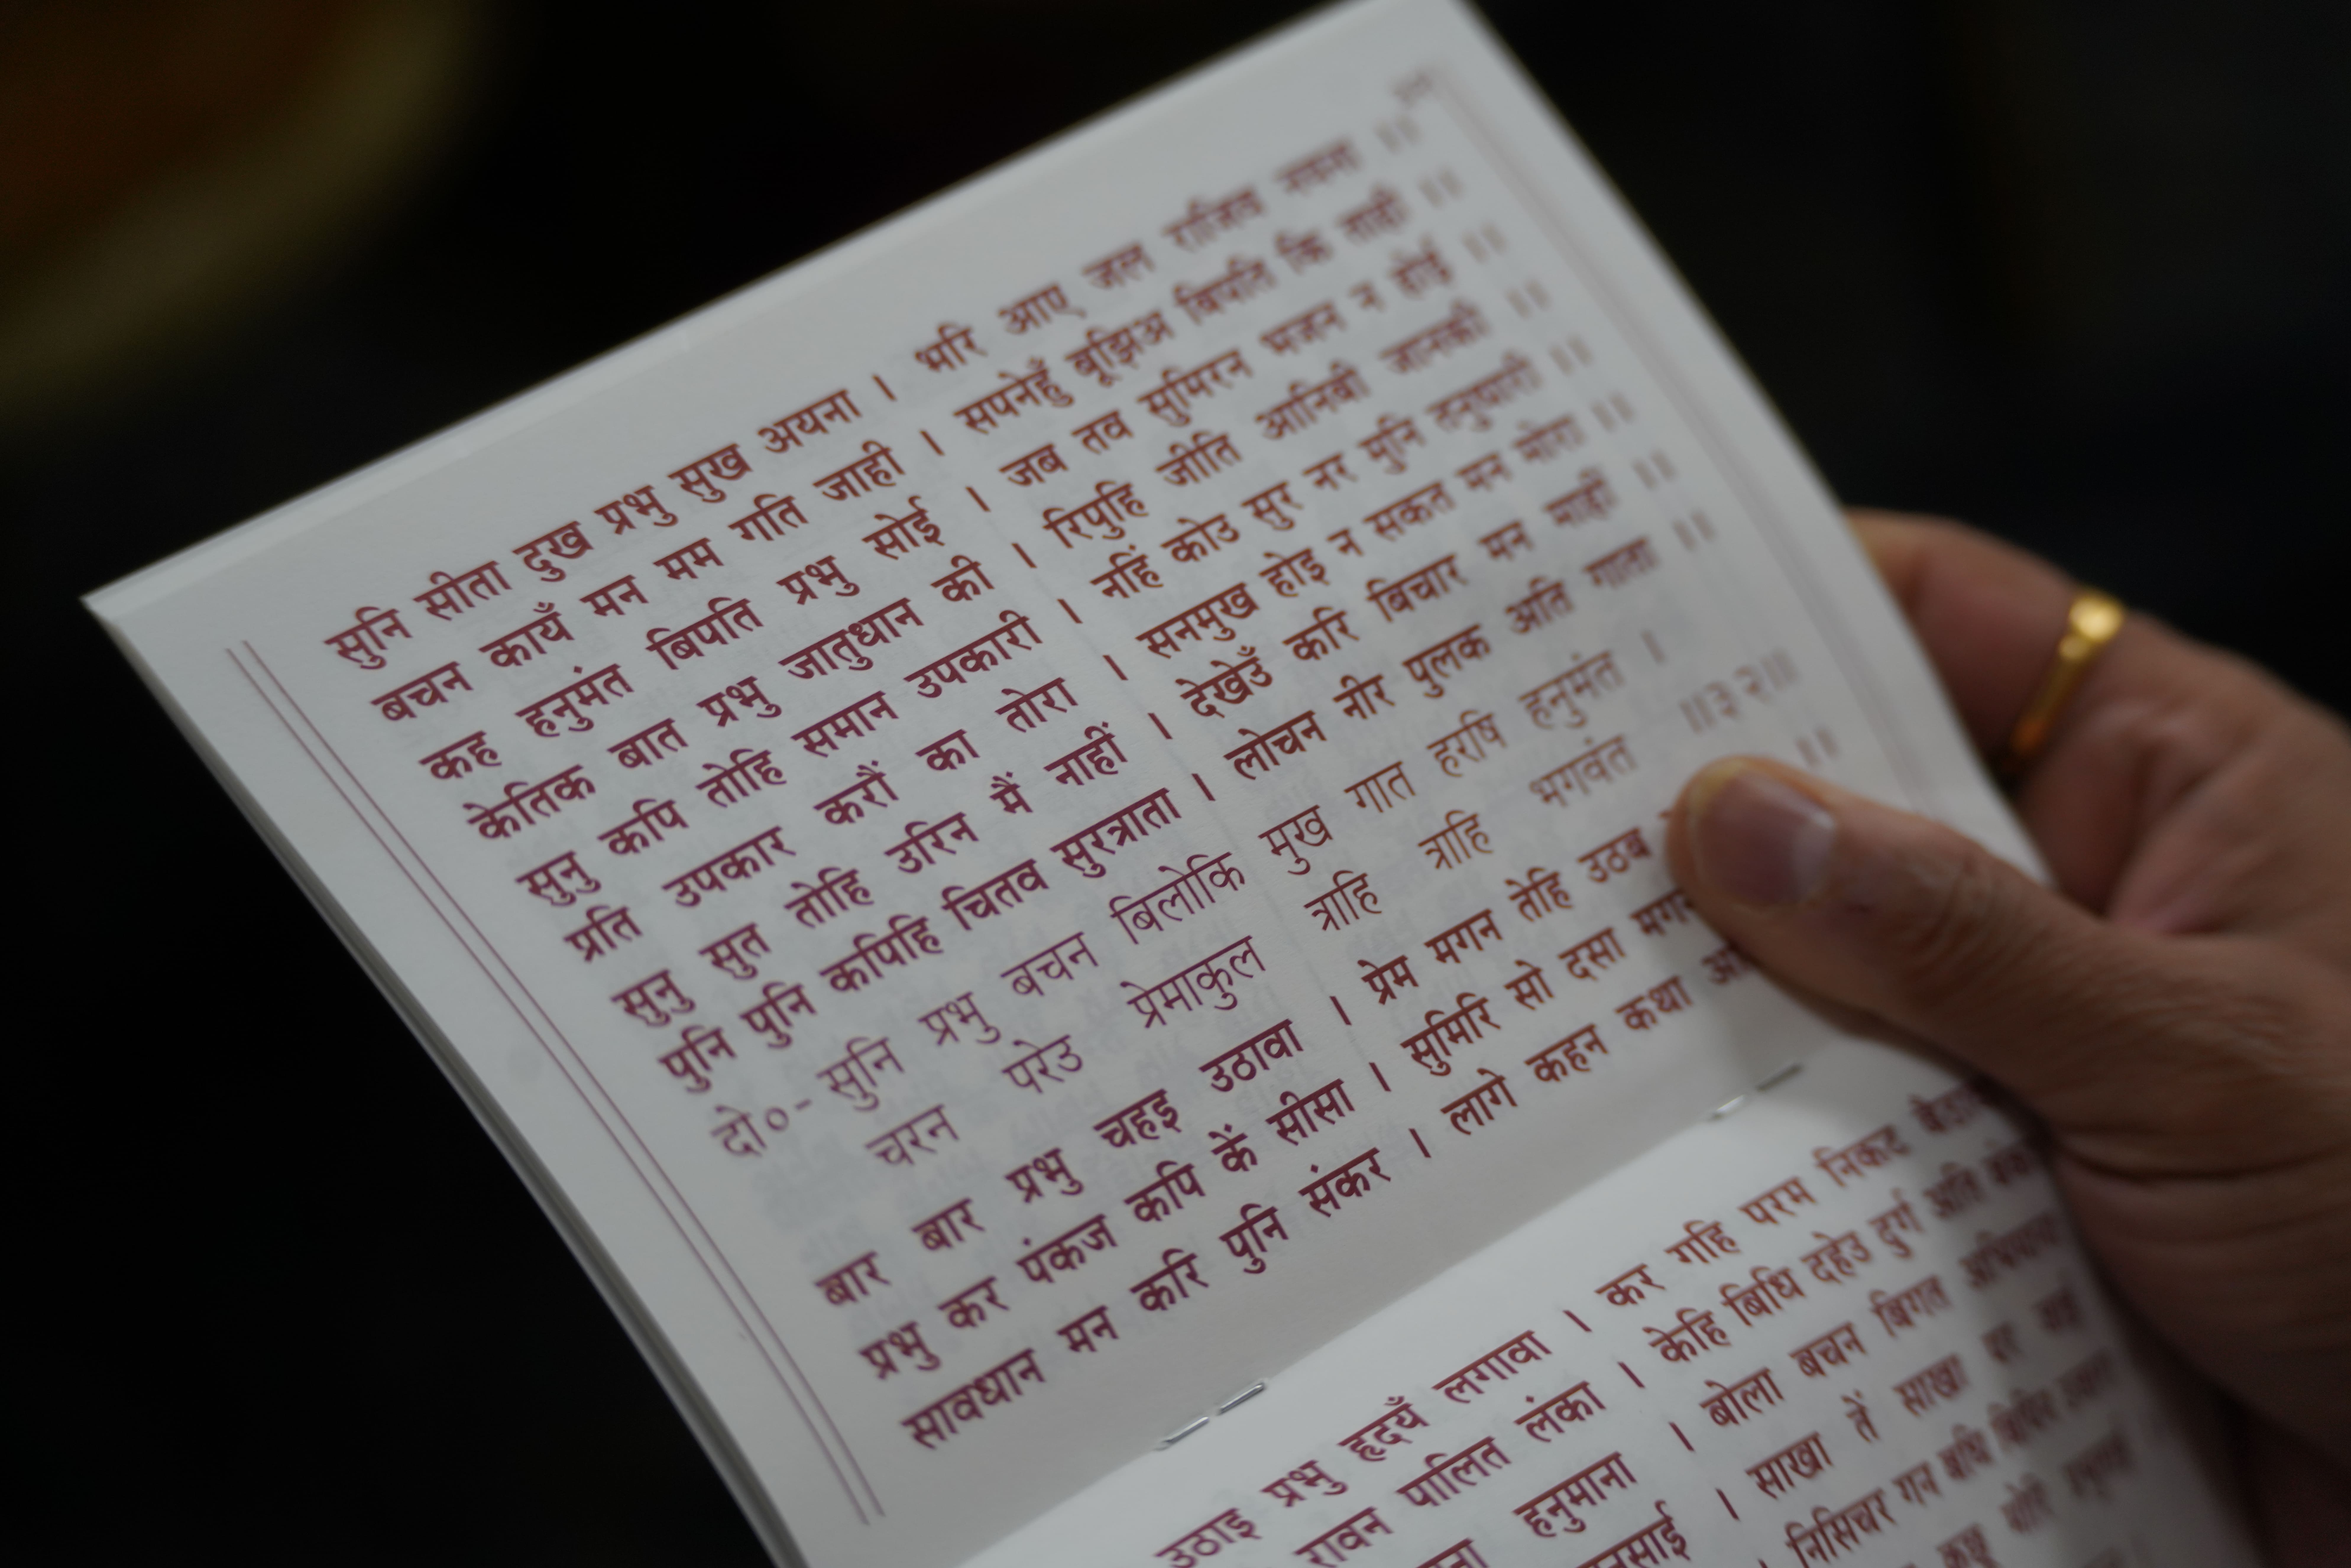 सुनि सीता दुख प्रभु सुख अयना । भरि आए जल राजिव नयना ॥
बचन कायँ मन मम गति जाही । सपनेहुँ बूझिअ बिपति कि ताही ॥
कह हनुमंत बिपति प्रभु सोई । जब तव सुमिरन भजन न होई ॥
केतिक बात प्रभु जातुधान की । रिपुहि जीति आनिबी जानकी ॥
सुनु कपि तोहि समान उपकारी । नहिं कोउ सुर नर मुनि तनुधारी ॥
प्रति उपकार करौं का तोरा । सनमुख होइ न सकत मन मोरा ॥
सुनु सुत तोहि उरिन मैं नाहीं । देखेउँ करि बिचार मन माहीं ॥
पुनि पुनि कपिहि चितव सुरत्राता । लोचन नीर पुलक अति गाता ॥
दो०- सुनि प्रभु बचन बिलोकि मुख गात हरषि हनुमंत ।
चरन परेउ प्रेमाकुल त्राहि त्राहि भगवंत ॥३२॥
बार बार प्रभु चहइ उठावा । प्रेम मगन तेहि उठब ॥
प्रभु कर पंकज कपि कें सीसा । सुमिरि सो दसा मगन
सावधान मन करि पुनि संकर । लागे कहन कथा
उठाइ प्रभु हृदयँ लगावा । कर गहि परम निकट
रावन पालित लंका । केहि बिधि दहेउ दुर्ग अति
हनुमाना । बोला बचन बिगत
। साखा तें साखा पर
। निसिचर गन बधि बिपिन